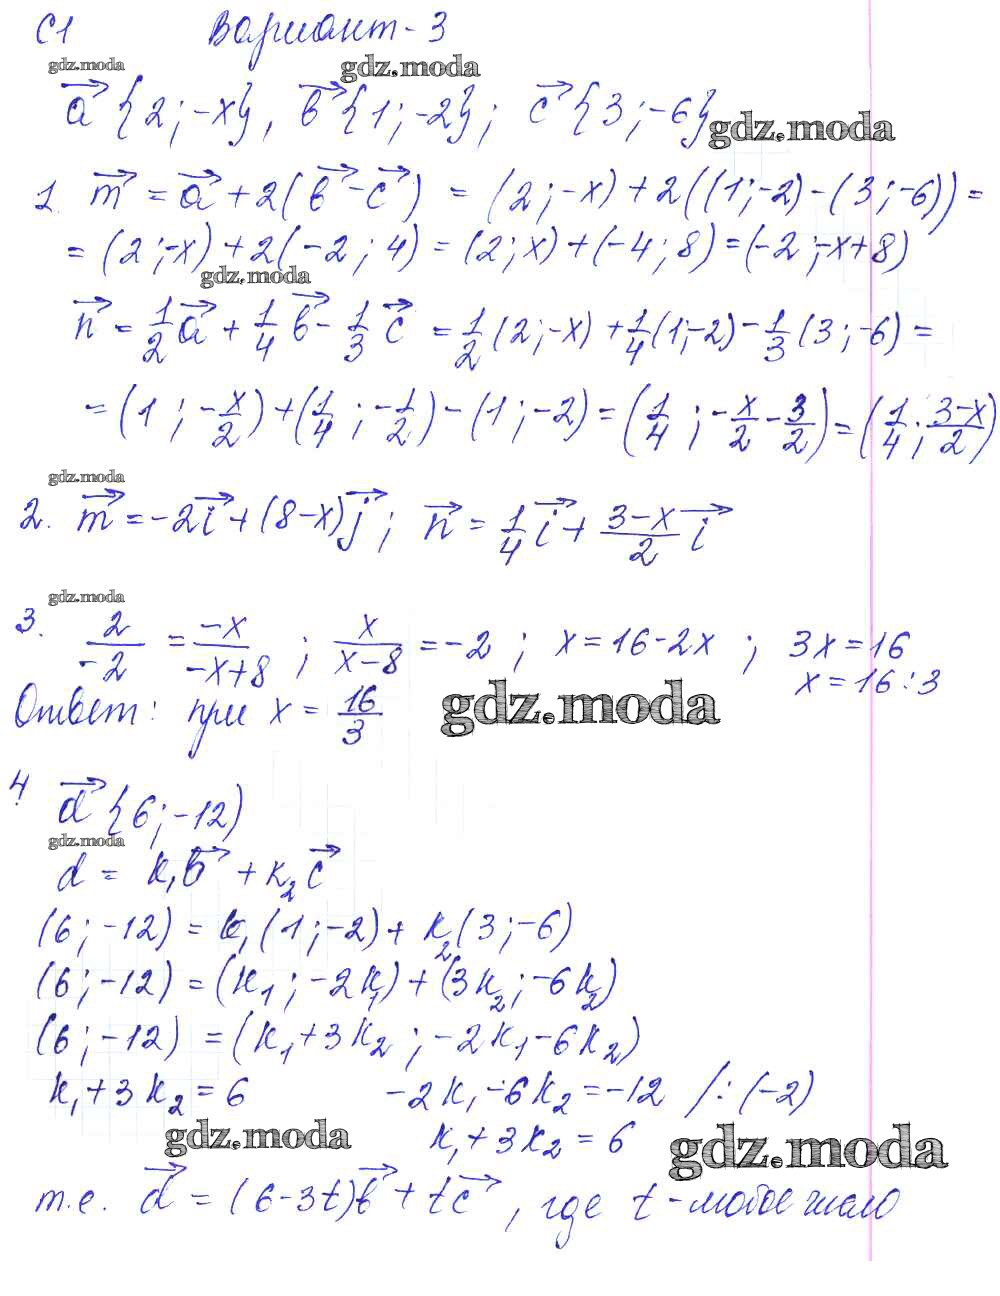 С1 Вариант-3
gdz.moda gdz.moda
a⃗ {2;-x}, b⃗ {1;-2}; c⃗ {3;-6}
gdz.moda
1. m⃗ = a⃗ + 2(b⃗ - c⃗) = (2;-x) + 2((1;-2) - (3;-6)) =
= (2;-x) + 2(-2;4) = (2;x) + (-4;8) = (-2;-x+8)
gdz.moda
n⃗ = 1/2 a⃗ + 1/4 b⃗ - 1/3 c⃗ = 1/2 (2;-x) + 1/4 (1;-2) - 1/3 (3;-6) =
= (1; -x/2) + (1/4; -1/2) - (1;-2) = (1/4; -x/2 - 3/2) = (1/4; (3-x)/2)
gdz.moda
2. m⃗ = -2i⃗ + (8-x)j⃗; n⃗ = 1/4 i⃗ + (3-x)/2 i⃗
gdz.moda
3. 2/-2 = -x/(-x+8); x/(x-8) = -2; x = 16-2x; 3x = 16
x = 16:3
Ответ: при x = 16/3
gdz.moda
4 d⃗ {6;-12)
gdz.moda
d = k₁b⃗ + k₂c⃗
(6;-12) = k₁(1;-2) + k₂(3;-6)
(6;-12) = (k₁;-2k₁) + (3k₂;-6k₂)
(6;-12) = (k₁+3k₂;-2k₁-6k₂)
k₁+3k₂ = 6 -2k₁-6k₂ = -12 /:(-2)
gdz.moda k₁+3k₂ = 6 gdz.moda
т.е. d⃗ = (6-3t)b⃗ + tc⃗, где t - любое число